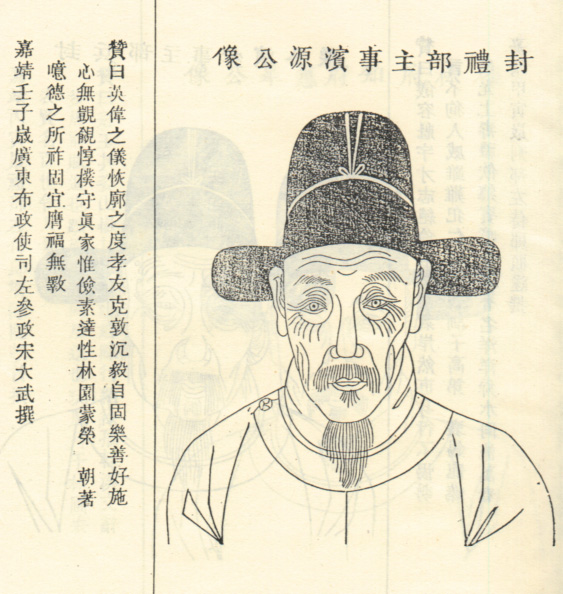 封禮部主事濱源公像
贊曰英偉之儀恢廓之度孝友克敦沉毅自固樂善好施
心無觀覦惇樸守眞家惟儉素達性林園蒙榮 朝著
噫德之所祚固宜膺福無斁
嘉靖壬子歲廣東布政使司左參政宋大武撰